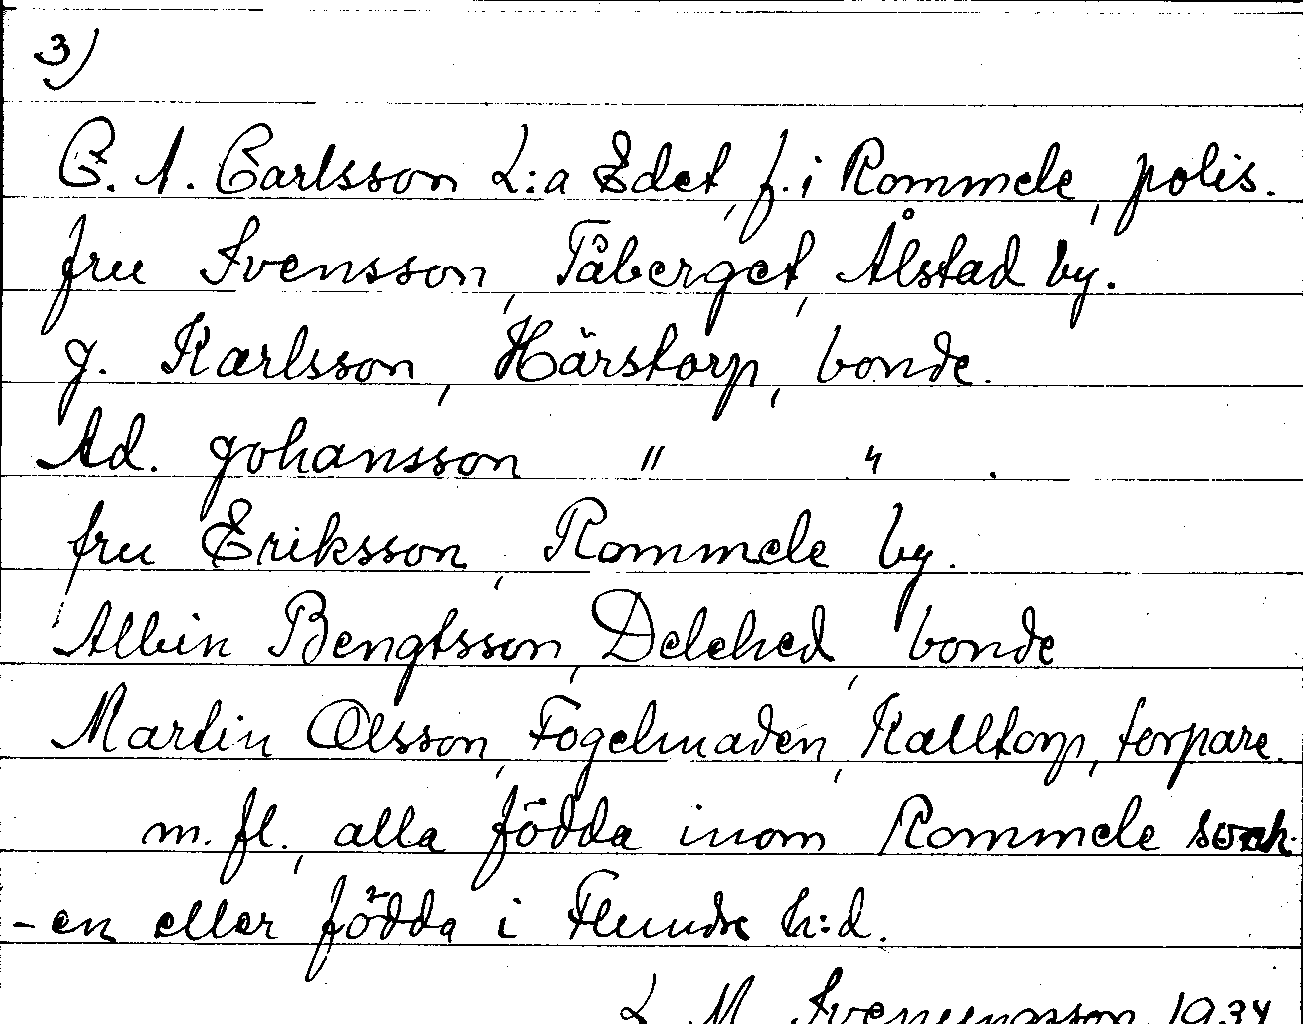 3)
C. A. Carlsson L:a Edet, f. i Rommele, polis.
fru Svensson, Tåberget, Ålstad by.
J. Karlsson, Härstorp, bonde.
Ad. Johansson " " .
fru Eriksson, Rommele by.
Albin Bengtsson, Delehed, bonde
Martin Olsson, Fogelmaden, Kalltorp, torpare.
m. fl., alla födda inom Rommele sock-
-en eller födda i Flundre h:d.
L M Svenungsson 1934